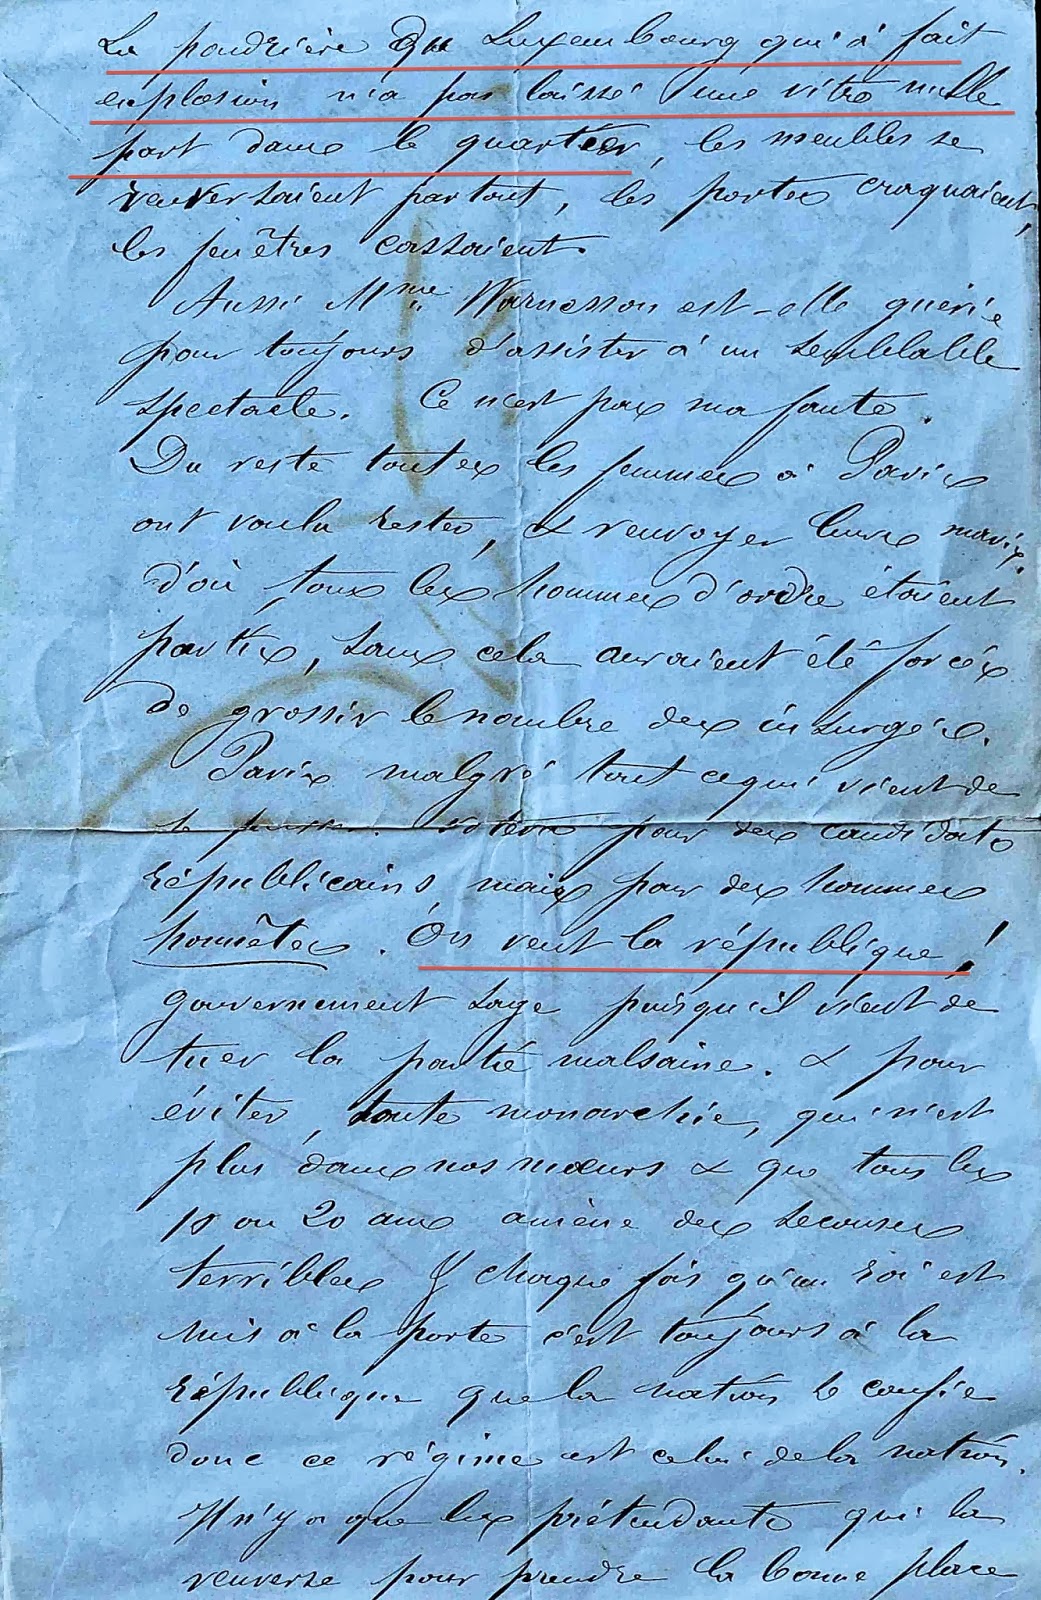 La poudrière du Luxembourg qui a fait
explosion n'a pas laissé une vitre nulle
part dans le quartier, les meubles se
renversaient partout, les portes craquaient,
les fenêtres cassaient.
Aussi Mme Warnesson est-elle guérie
pour toujours d'assister à un semblable
spectacle. Ce n'est pas ma faute.
Du reste toutes les femmes à Paris
ont voulu rester, & renvoyer leurs maris.
d'où tous les hommes d'ordre étaient
partis, sans cela auraient été forcés
de grossir le nombre des insurgés.
Paris malgré tout ce qui vient de
se passer. votera pour des candidats
républicains mais pour des hommes
honnêtes. On veut la république!
gouvernement sage puisqu'il vient de
tuer la partie malsaine. & pour
éviter toute monarchie, qui n'est
plus dans nos mœurs & que tous les
18 ou 20 ans amène des secousses
terribles & chaque fois qu'un roi est
mis à la porte c'est toujours à la
république que la nation se confie
donc ce régime est celui de la nation.
Il n'y a que les prétendants qui la
renverse pour prendre la bonne place